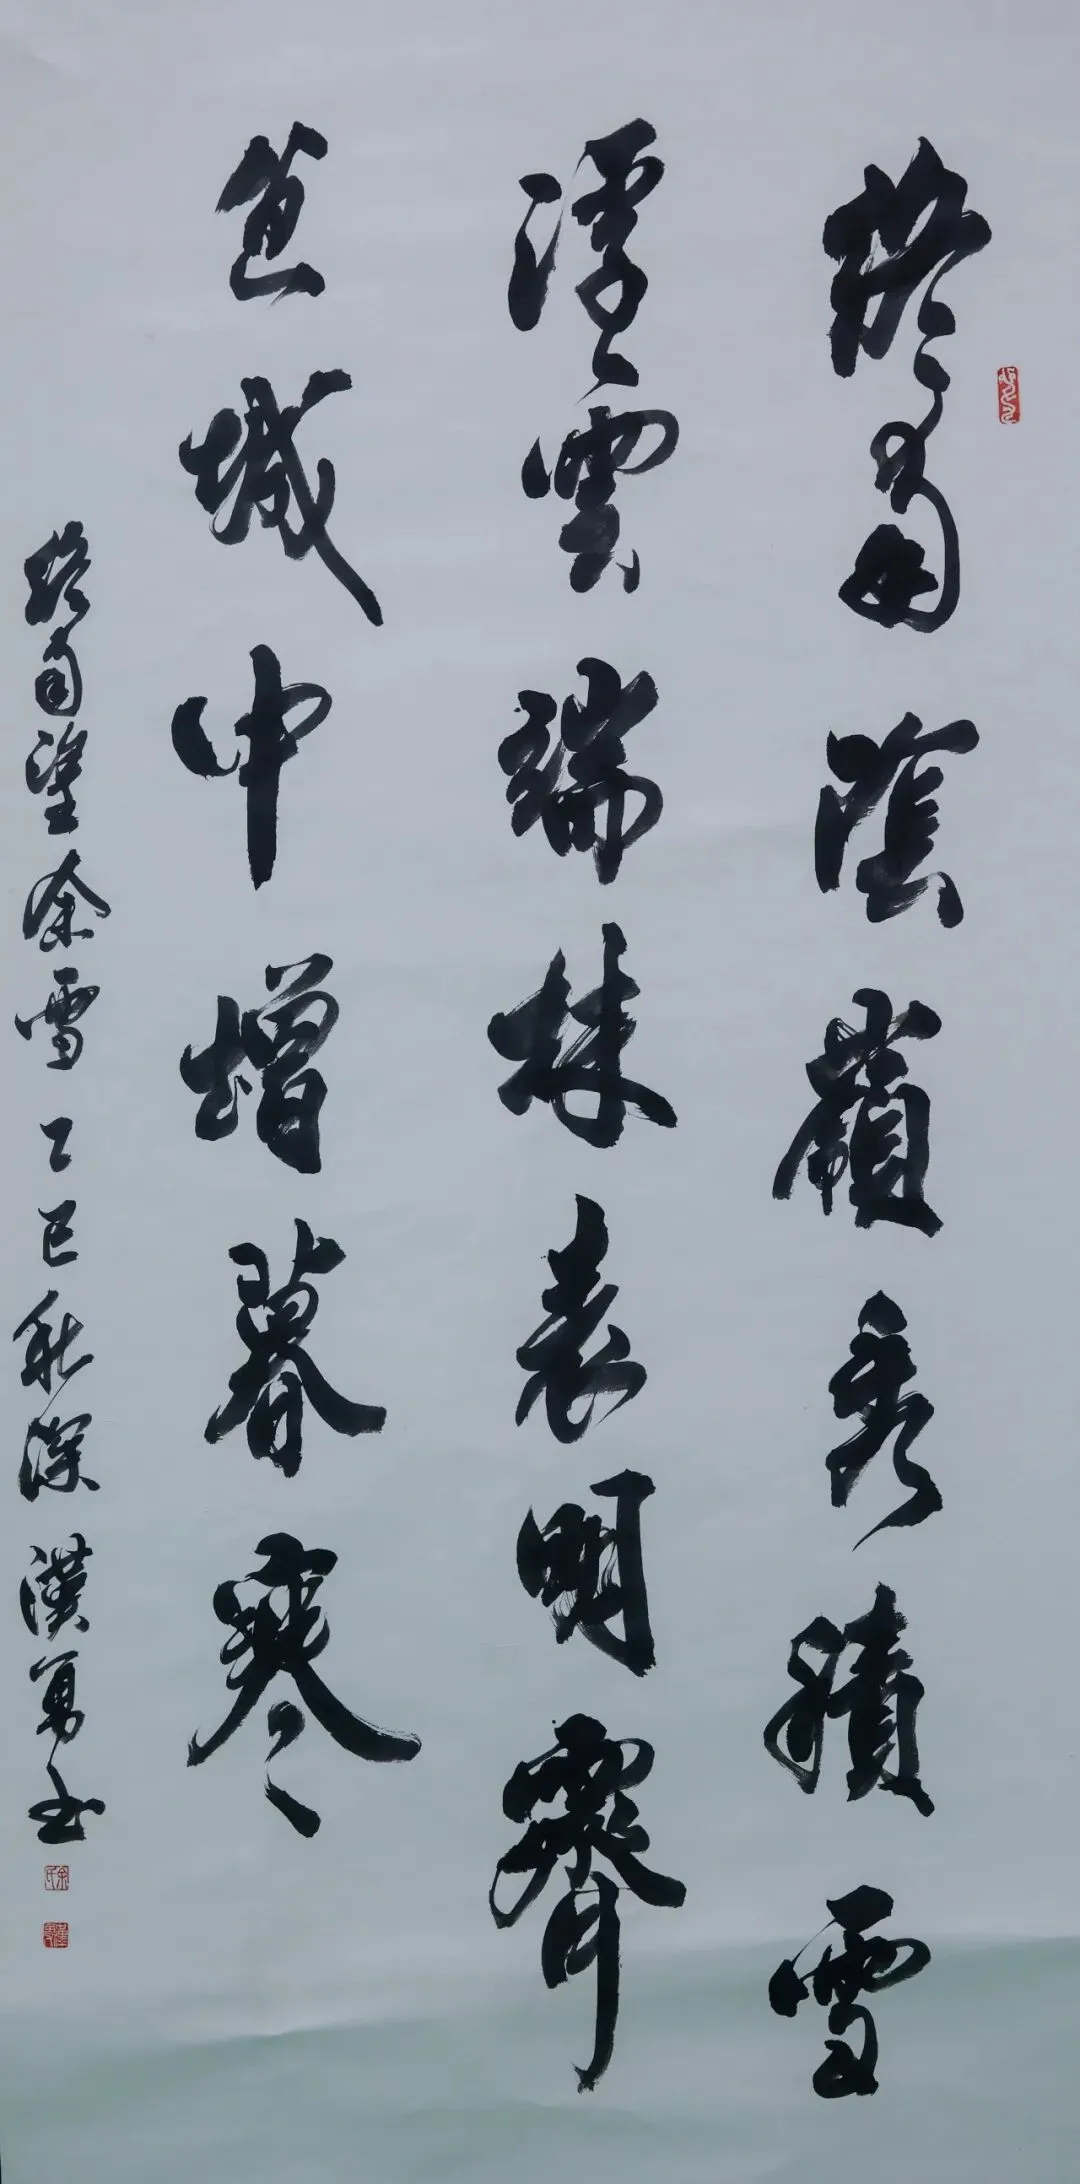 終南陰嶺秀積雪
浮雲端林表明霽
色城中增暮寒
終南望余雪 乙巳秋深 漢勇书